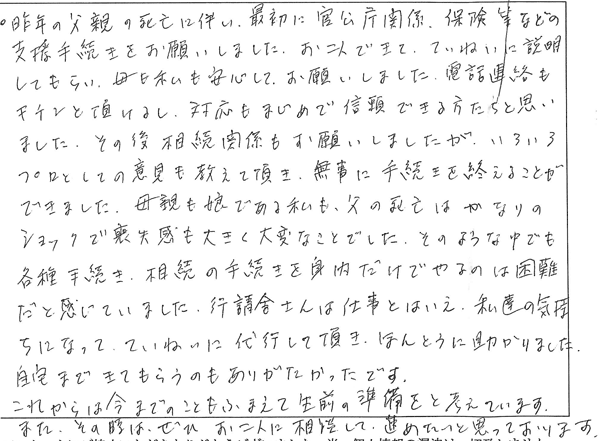 ・昨年の父親の死亡に伴い、最初に官公庁関係、保険等などの
支援手続きをお願いしました。お二人できて、ていねいに説明
してもらい、母も私も安心して、お願いしました。電話連絡も
キチンと頂けるし、対応もまじめで信頼できる方たちと思い
ました。その後相続関係もお願いしましたが、いろいろ
プロとしての意見も教えて頂き、無事に手続きを終えることが
できました。母親も娘である私も、父の死亡はかなりの
ショックで喪失感も大きく大変なことでした。そのような中でも
各種手続き、相続の手続きを身内だけでやるのは困難
だと感じていました。行政書士さんは仕事とはいえ、私達の気持
ちになって、ていねいに代行して頂き、ほんとうに助かりました。
自宅まできてもらうのもありがたかったです。
これからは今までのこともふまえて生前の準備をと考えています。
また、その時は、ぜひ、お二人に相談して、進めたいと思っております。